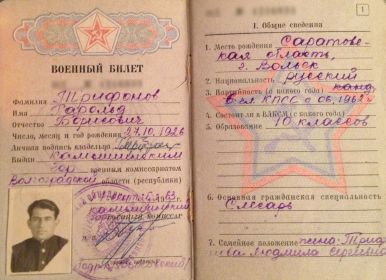 ВОЕННЫЙ БИЛЕТ
Фамилия Трифонов
Имя Гарольд
Отчество Борисович
Число, месяц и год рождения 27.10.1926
Личная подпись владельца
Выдан Камышинским
гор. военным комиссариатом
Волгоградской области (республики)
1
I. Общие сведения
1. Место рождения Саратовс-
кая область,
г. Вольск
2. Национальность русский
3. Партийность (с какого года) канд.
в чл. КПСС с 06.1962 г
4. Состоит ли в ВЛКСМ (с какого года)
5. Образование 10 классов
6. Основная гражданская специальность
Слесарь
7. Семейное положение жена: Триф
Людмила Сергеевна